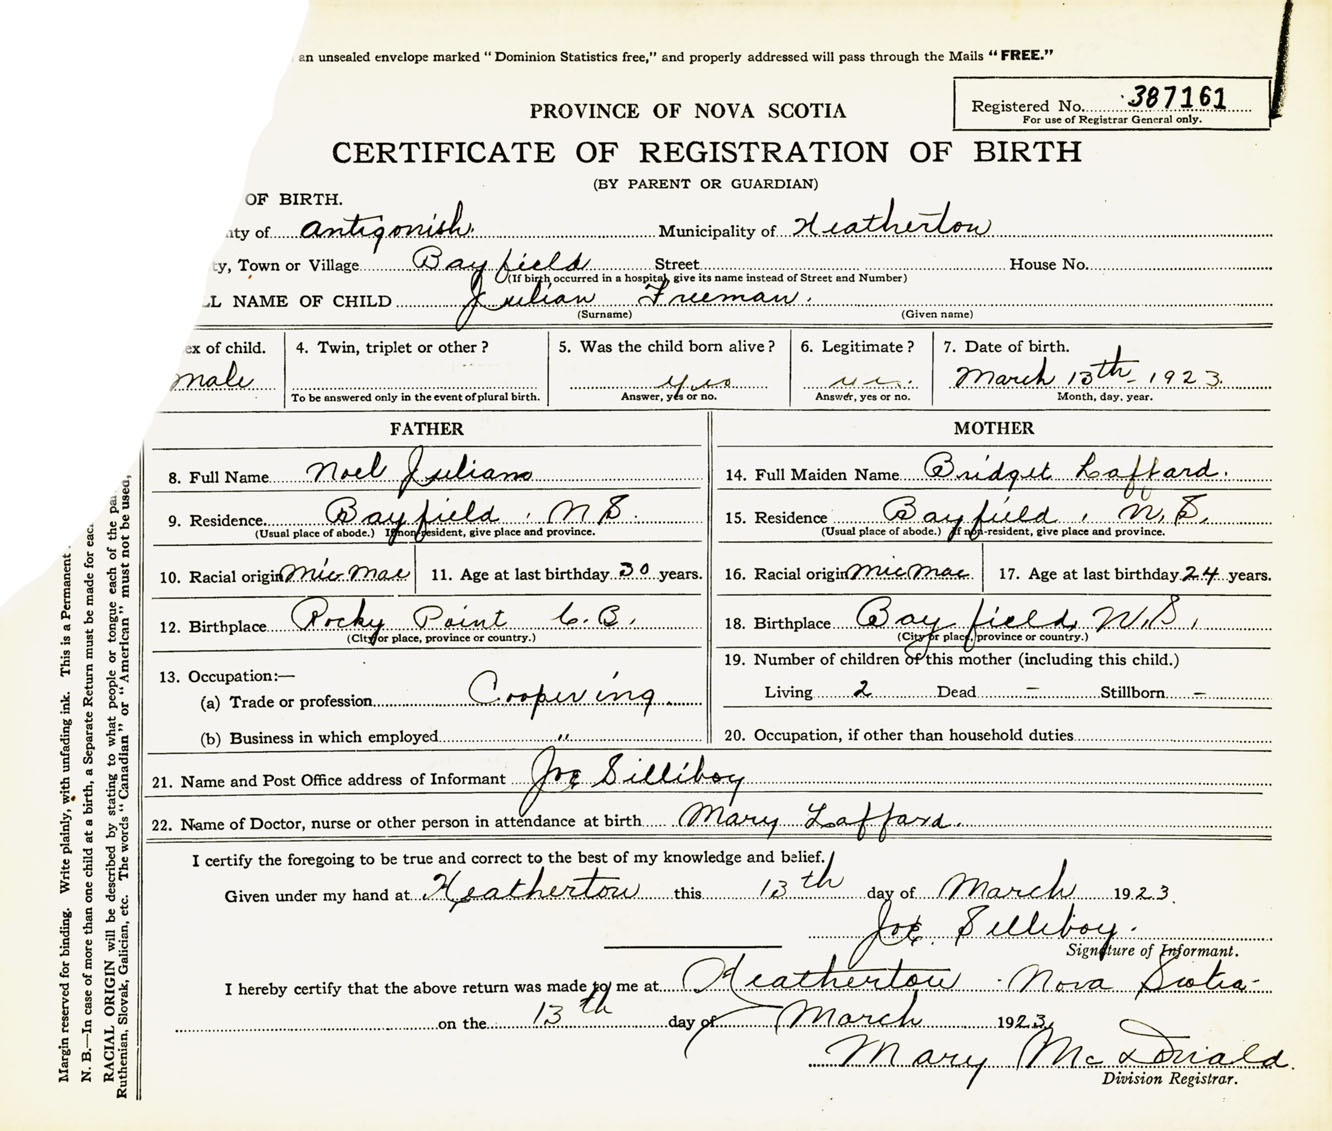 an unsealed envelope marked "Dominion Statistics free," and properly addressed will pass through the Mails "FREE."
Registered No. 387161
For use of Registrar General only.
PROVINCE OF NOVA SCOTIA
CERTIFICATE OF REGISTRATION OF BIRTH
(BY PARENT OR GUARDIAN)
OF BIRTH.
nty of Antigonish. Municipality of Heatherton
ty, Town or Village Bayfield Street House No.
(If birth occurred in a hospital, give its name instead of Street and Number)
LL NAME OF CHILD Julian Freeman.
(Surname) (Given name)
ex of child. 4. Twin, triplet or other? 5. Was the child born alive? 6. Legitimate? 7. Date of birth.
male yes yes. March 13th - 1923.
To be answered only in the event of plural birth. Answer, yes or no. Answer, yes or no. Month, day, year.
FATHER MOTHER
8. Full Name Noel Julian 14. Full Maiden Name Bridget Laffard.
9. Residence Bayfield, N S. 15. Residence Bayfield, N.S.
(Usual place of abode.) If non-resident, give place and province. (Usual place of abode.) If non-resident, give place and province.
10. Racial origin Mic Mac 11. Age at last birthday 30 years. 16. Racial origin Mic Mac. 17. Age at last birthday 24 years.
12. Birthplace Rocky Point C.B. 18. Birthplace Bayfield, N.S.
(City or place, province or country.) (City or place, province or country.)
13. Occupation:— 19. Number of children of this mother (including this child.)
(a) Trade or profession Coopering Living 2 Dead – Stillborn –
(b) Business in which employed " 20. Occupation, if other than household duties
21. Name and Post Office address of Informant Joe Silliboy
22. Name of Doctor, nurse or other person in attendance at birth Mary Laffard.
I certify the foregoing to be true and correct to the best of my knowledge and belief.
Given under my hand at Heatherton this 13th day of March 1923.
Joe Silliboy.
Signature of Informant.
I hereby certify that the above return was made to me at Heatherton Nova Scotia
on the 13th day of March 1923.
Mary McDonald.
Division Registrar.
Margin reserved for binding. Write plainly, with unfading ink. This is a Permanent
N. B.—In case of more than one child at a birth, a Separate Return must be made for eac
RACIAL ORIGIN will be described by stating to what people or tongue each of the pa
Ruthenian, Slovak, Galician, etc. The words "Canadian" or "American" must not be used,